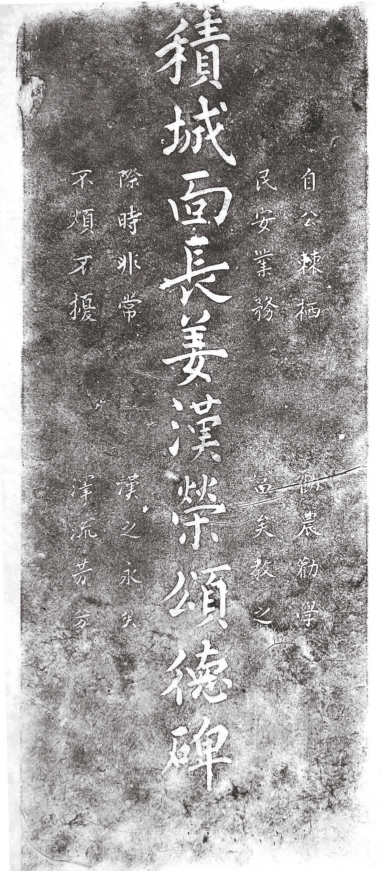 積城面長姜漢榮頌德碑
自公棘栖 農勸學
民安業務 矣教之
際時非常 漢之永
不煩不擾 澤流芳